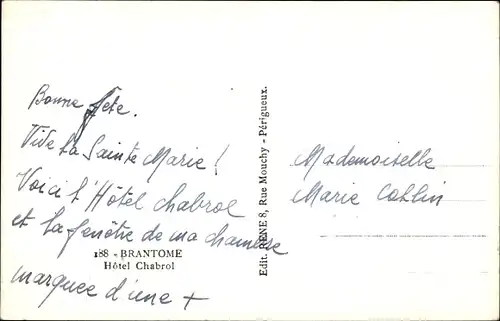 Bonne fete.
Vive la Sainte Marie !
Voici l'Hôtel chabrol
et la fenêtre de ma chambre
188 - BRANTOME
Hôtel Chabrol
marquee d'une +
Edit. RENE 8, Rue Mouchy - Périgueux.
Mademoiselle
Marie Collin